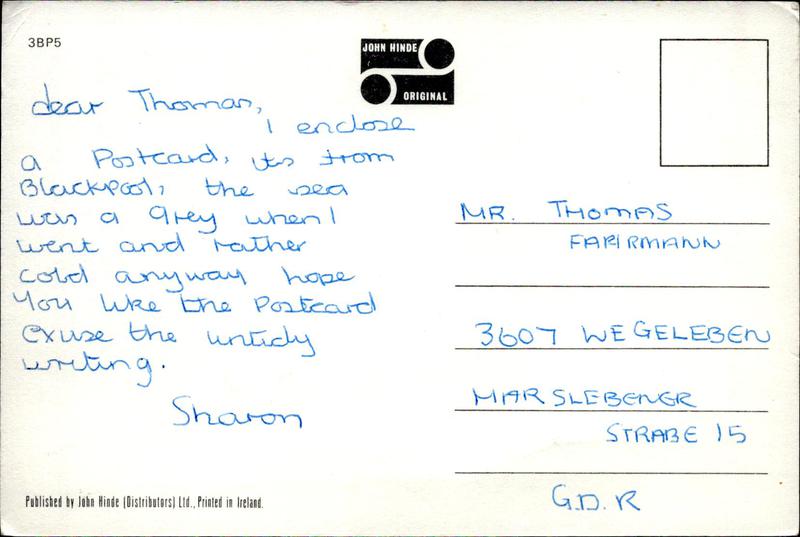 3BP5
JOHN HINDE
ORIGINAL
dear Thomas,
I enclose
a Postcard, its from
Blackpool, the sea
was a grey when I
went and rather
cold anyway hope
You like the Postcard
exuse the untidy
writing.
Sharon
MR. THOMAS
FAHRMANN
3607 WEGELEBEN
HARSLEBENER
STRABE 15
G.D.R
Published by John Hinde (Distributors) Ltd., Printed in Ireland.